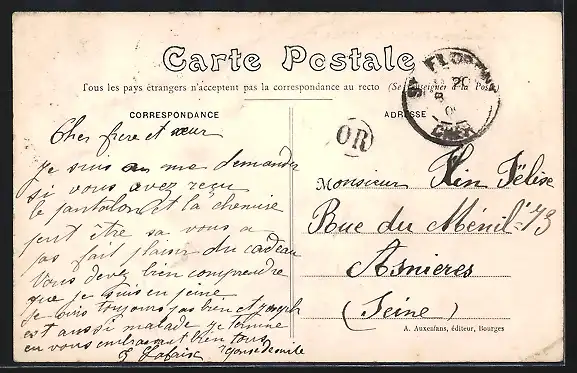 Carte Postale
Tous les pays étrangers n'acceptent pas la correspondance au recto (Se renseigner à la Poste)
CORRESPONDANCE
Cher frere et sœur
je suis a me demander
si vous avez reçu
le pantalon et la chemise
peut être sa vous a
pas fait plaisir du cadeau
Vous devez bien comprendre
que je suis en peine
je suis toujours pas bien et joseph
est aussi malade je termine
en vous embrassant bien tous
ADRESSE
ST FLORENT
CHER
OR
Monsieur Klin Félise
Rue du Ménil 73
Asnieres
(Seine)
A. Auxenfans, éditeur, Bourges